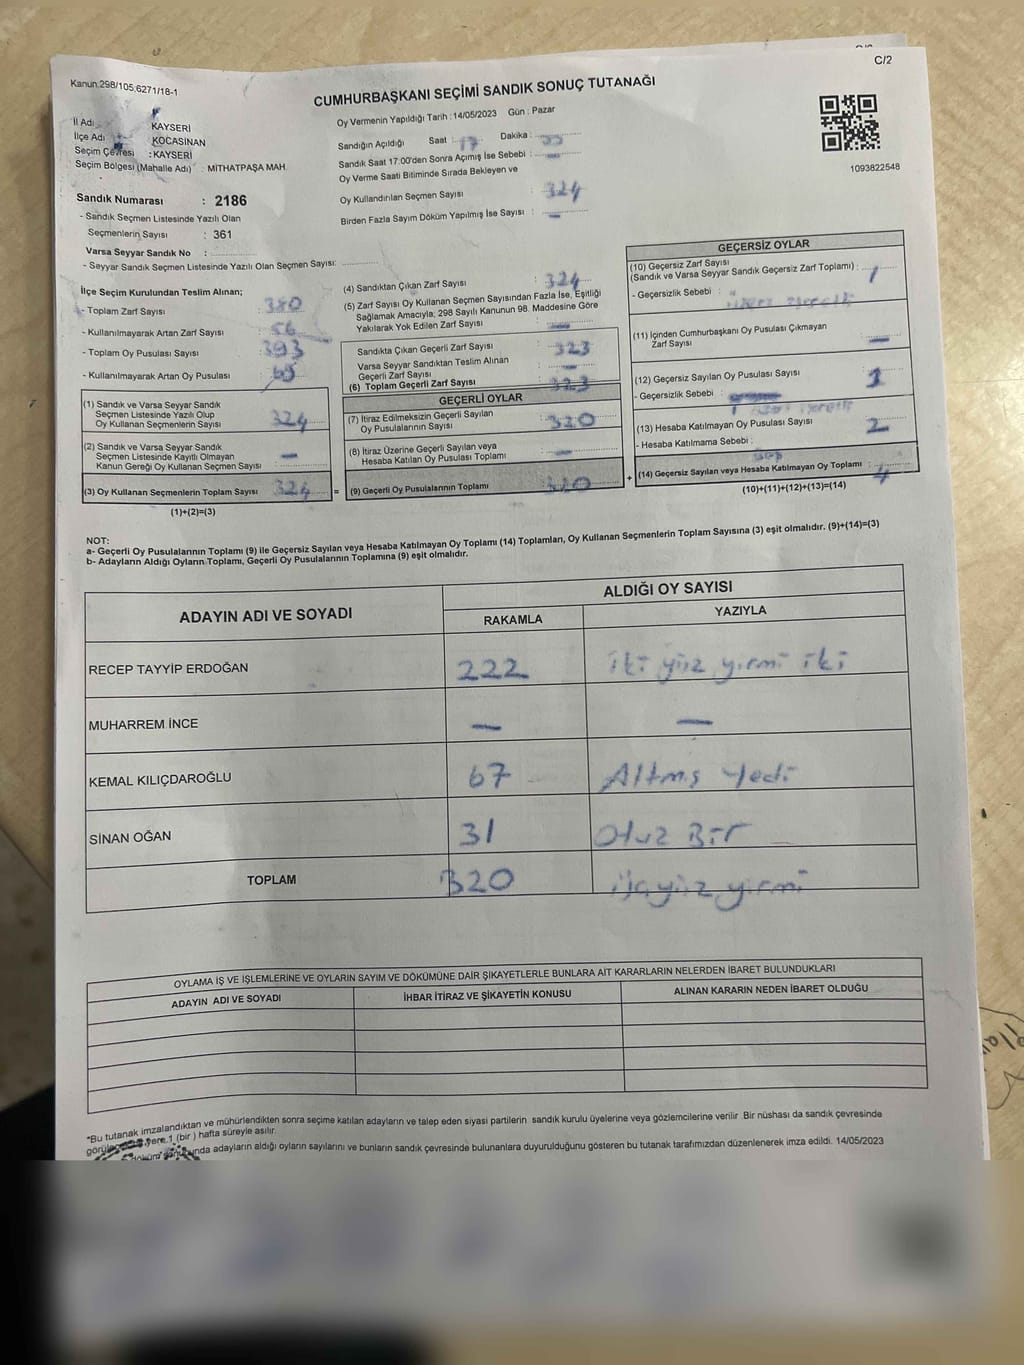 C/2
Kanun:298/105;6271/18-1
CUMHURBAŞKANI SEÇİMİ SANDIK SONUÇ TUTANAĞI
İl Adı : KAYSERİ
İlçe Adı : KOCASİNAN
Seçim Çevresi : KAYSERİ
Seçim Bölgesi (Mahalle Adı) : MİTHATPAŞA MAH
Sandık Numarası : 2186
- Sandık Seçmen Listesinde Yazılı Olan
Seçmenlerin Sayısı : 361
Varsa Seyyar Sandık No :
- Seyyar Sandık Seçmen Listesinde Yazılı Olan Seçmen Sayısı:
Oy Vermenin Yapıldığı Tarih : 14/05/2023 Gün : Pazar
Sandığın Açıldığı Saat : 17 Dakika :
Sandık Saat 17:00'den Sonra Açımış İse Sebebi : —
Oy Verme Saati Bitiminde Sırada Bekleyen ve
Oy Kullandırılan Seçmen Sayısı : 324
Birden Fazla Sayım Döküm Yapılmış İse Sayısı : —
1093822548
İlçe Seçim Kurulundan Teslim Alınan;
- Toplam Zarf Sayısı : 380
- Kullanılmayarak Artan Zarf Sayısı : 56
- Toplam Oy Pusulası Sayısı : 393
- Kullanılmayarak Artan Oy Pusulası : 69
(1) Sandık ve Varsa Seyyar Sandık
Seçmen Listesinde Yazılı Olup
Oy Kullanan Seçmenlerin Sayısı : 324
(2) Sandık ve Varsa Seyyar Sandık
Seçmen Listesinde Kayıtlı Olmayan
Kanun Gereği Oy Kullanan Seçmen Sayısı : —
(3) Oy Kullanan Seçmenlerin Toplam Sayısı : 324
(1)+(2)=(3)
=
(4) Sandıktan Çıkan Zarf Sayısı : 324
(5) Zarf Sayısı Oy Kullanan Seçmen Sayısından Fazla İse, Eşitliği
Sağlamak Amacıyla; 298 Sayılı Kanunun 98. Maddesine Göre
Yakılarak Yok Edilen Zarf Sayısı : —
Sandıkta Çıkan Geçerli Zarf Sayısı : 323
Varsa Seyyar Sandıktan Teslim Alınan
Geçerli Zarf Sayısı : —
(6) Toplam Geçerli Zarf Sayısı : 323
GEÇERLİ OYLAR
(7) İtiraz Edilmeksizin Geçerli Sayılan
Oy Pusulasının Sayısı : 320
(8) İtiraz Üzerine Geçerli Sayılan veya
Hesaba Katılan Oy Pusulası Toplamı : —
(9) Geçerli Oy Pusulalarının Toplamı : 320
+
GEÇERSİZ OYLAR
(10) Geçersiz Zarf Sayısı
(Sandık ve Varsa Seyyar Sandık Geçersiz Zarf Toplamı) : 1
- Geçersizlik Sebebi :
(11) İçinden Cumhurbaşkanı Oy Pusulası Çıkmayan
Zarf Sayısı : —
(12) Geçersiz Sayılan Oy Pusulası Sayısı : 1
- Geçersizlik Sebebi :
(13) Hesaba Katılmayan Oy Pusulası Sayısı : 2
- Hesaba Katılmama Sebebi :
(14) Geçersiz Sayılan veya Hesaba Katılmayan Oy Toplamı : 4
(10)+(11)+(12)+(13)=(14)
NOT:
a- Geçerli Oy Pusulalarının Toplamı (9) ile Geçersiz Sayılan veya Hesaba Katılmayan Oy Toplamı (14) Toplamları, Oy Kullanan Seçmenlerin Toplam Sayısına (3) eşit olmalıdır. (9)+(14)=(3)
b- Adayların Aldığı Oyların Toplamı, Geçerli Oy Pusulalarının Toplamına (9) eşit olmalıdır.
ADAYIN ADI VE SOYADI ALDIĞI OY SAYISI
RAKAMLA YAZIYLA
RECEP TAYYİP ERDOĞAN 222 iki yüz yirmi iki
MUHARREM İNCE — —
KEMAL KILIÇDAROĞLU 67 Altmış Yedi
SİNAN OĞAN 31 Otuz Bir
TOPLAM 320 üçyüz yirmi
OYLAMA İŞ VE İŞLEMLERİNE VE OYLARIN SAYIM VE DÖKÜMÜNE DAİR ŞİKAYETLERLE BUNLARA AİT KARARLARIN NELERDEN İBARET BULUNDUKLARI
ADAYIN ADI VE SOYADI İHBAR İTİRAZ VE ŞİKAYETİN KONUSU ALINAN KARARIN NEDEN İBARET OLDUĞU
*Bu tutanak imzalandıktan ve mühürlendikten sonra seçime katılan adayların ve talep eden siyasi partilerin sandık kurulu üyelerine veya gözlemcilerine verilir Bir nüshası da sandık çevresinde
yere 1 (bir ) hafta süreyle asılır.
adayların aldığı oyların sayılarını ve bunların sandık çevresinde bulunanlara duyurulduğunu gösteren bu tutanak tarafımızdan düzenlenerek imza edildi. 14/05/2023